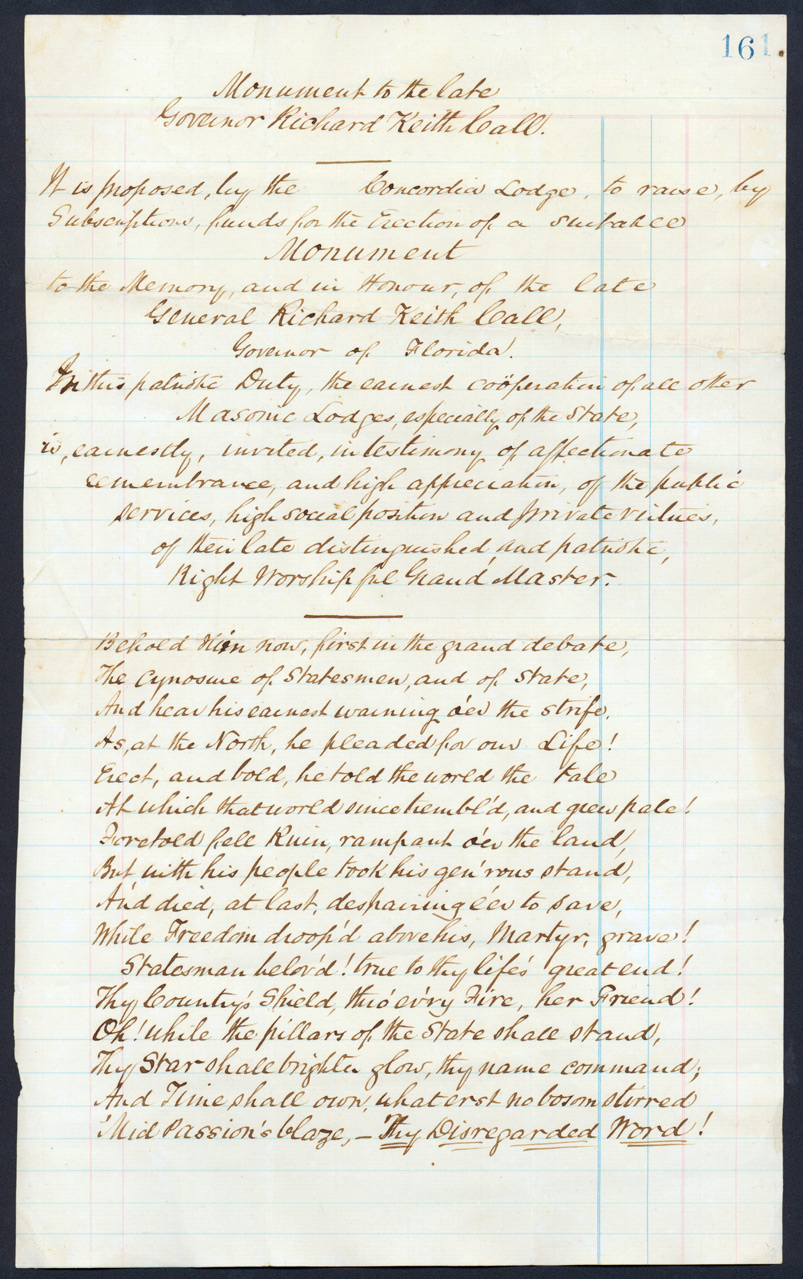 161.
Monument to the late
Governor Richard Keith Call.
It is proposed, by the Concordia Lodge, to raise, by
Subscription, funds for the Erection of a suitable
Monument
to the Memory, and in Honour, of the late
General Richard Keith Call,
Governor of Florida.
In this patriotic Duty, the earnest coöperation of all other
Masonic Lodges, especially of the State,
is, earnestly, invited, in testimony of affectionate
remembrance, and high appreciation, of the public
services, high social position and private virtues,
of their late distinguished, and patriotic,
Right Worshipful Grand Master.
Behold Him now, first in the grand debate,
The Cynosure of Statesmen, and of State,
And hear his earnest warning o'er the strife,
As, at the North, he pleaded for our Life!
Erect, and bold, he told the world the Tale
At which that world since trembl'd, and grew pale!
Foretold fell Ruin, rampant o'er the land,
But with his people took his gen'rous stand,
And died, at last, despairing e'er to save,
While Freedom droop'd above his, Martyr, grave!
Statesman belov'd! true to thy life's great end!
Thy Country's Shield, thro' ev'ry Fire, her Friend!
Oh! while the pillars of the State shall stand,
Thy Star shall brighter glow, thy name command;
And Time shall own, what erst no bosom stirred
'Mid Passion's blaze, – Thy Disregarded Word!